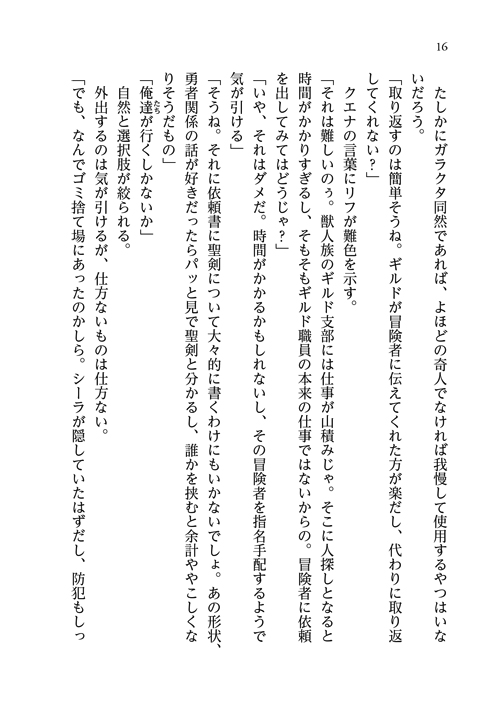 16
たしかにガラクタ同然であれば、よほどの奇人でなければ我慢して使用するやつはいな
いだろう。
「取り返すのは簡単そうね。ギルドが冒険者に伝えてくれた方が楽だし、代わりに取り返
してくれない？」
クエナの言葉にリフが難色を示す。
「それは難しいのぅ。獣人族のギルド支部には仕事が山積みじゃ。そこに人探しとなると
時間がかかりすぎるし、そもそもギルド職員の本来の仕事ではないからの。冒険者に依頼
を出してみてはどうじゃ？」
「いや、それはダメだ。時間がかかるかもしれないし、その冒険者を指名手配するようで
気が引ける」
「そうね。それに依頼書に聖剣について大々的に書くわけにもいかないでしょ。あの形状、
勇者関係の話が好きだったらパッと見で聖剣と分かるし、誰かを挟むと余計ややこしくな
りそうだもの」
「俺達が行くしかないか」
自然と選択肢が絞られる。
外出するのは気が引けるが、仕方ないものは仕方ない。
「でも、なんでゴミ捨て場にあったのかしら。シーラが隠していたはずだし、防犯もしっ